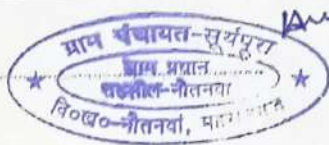 ग्राम पंचायत-सूर्यपुरा
ग्राम प्रधान
तहसील-नौतनवा
वि०ख०-नौतनवां,